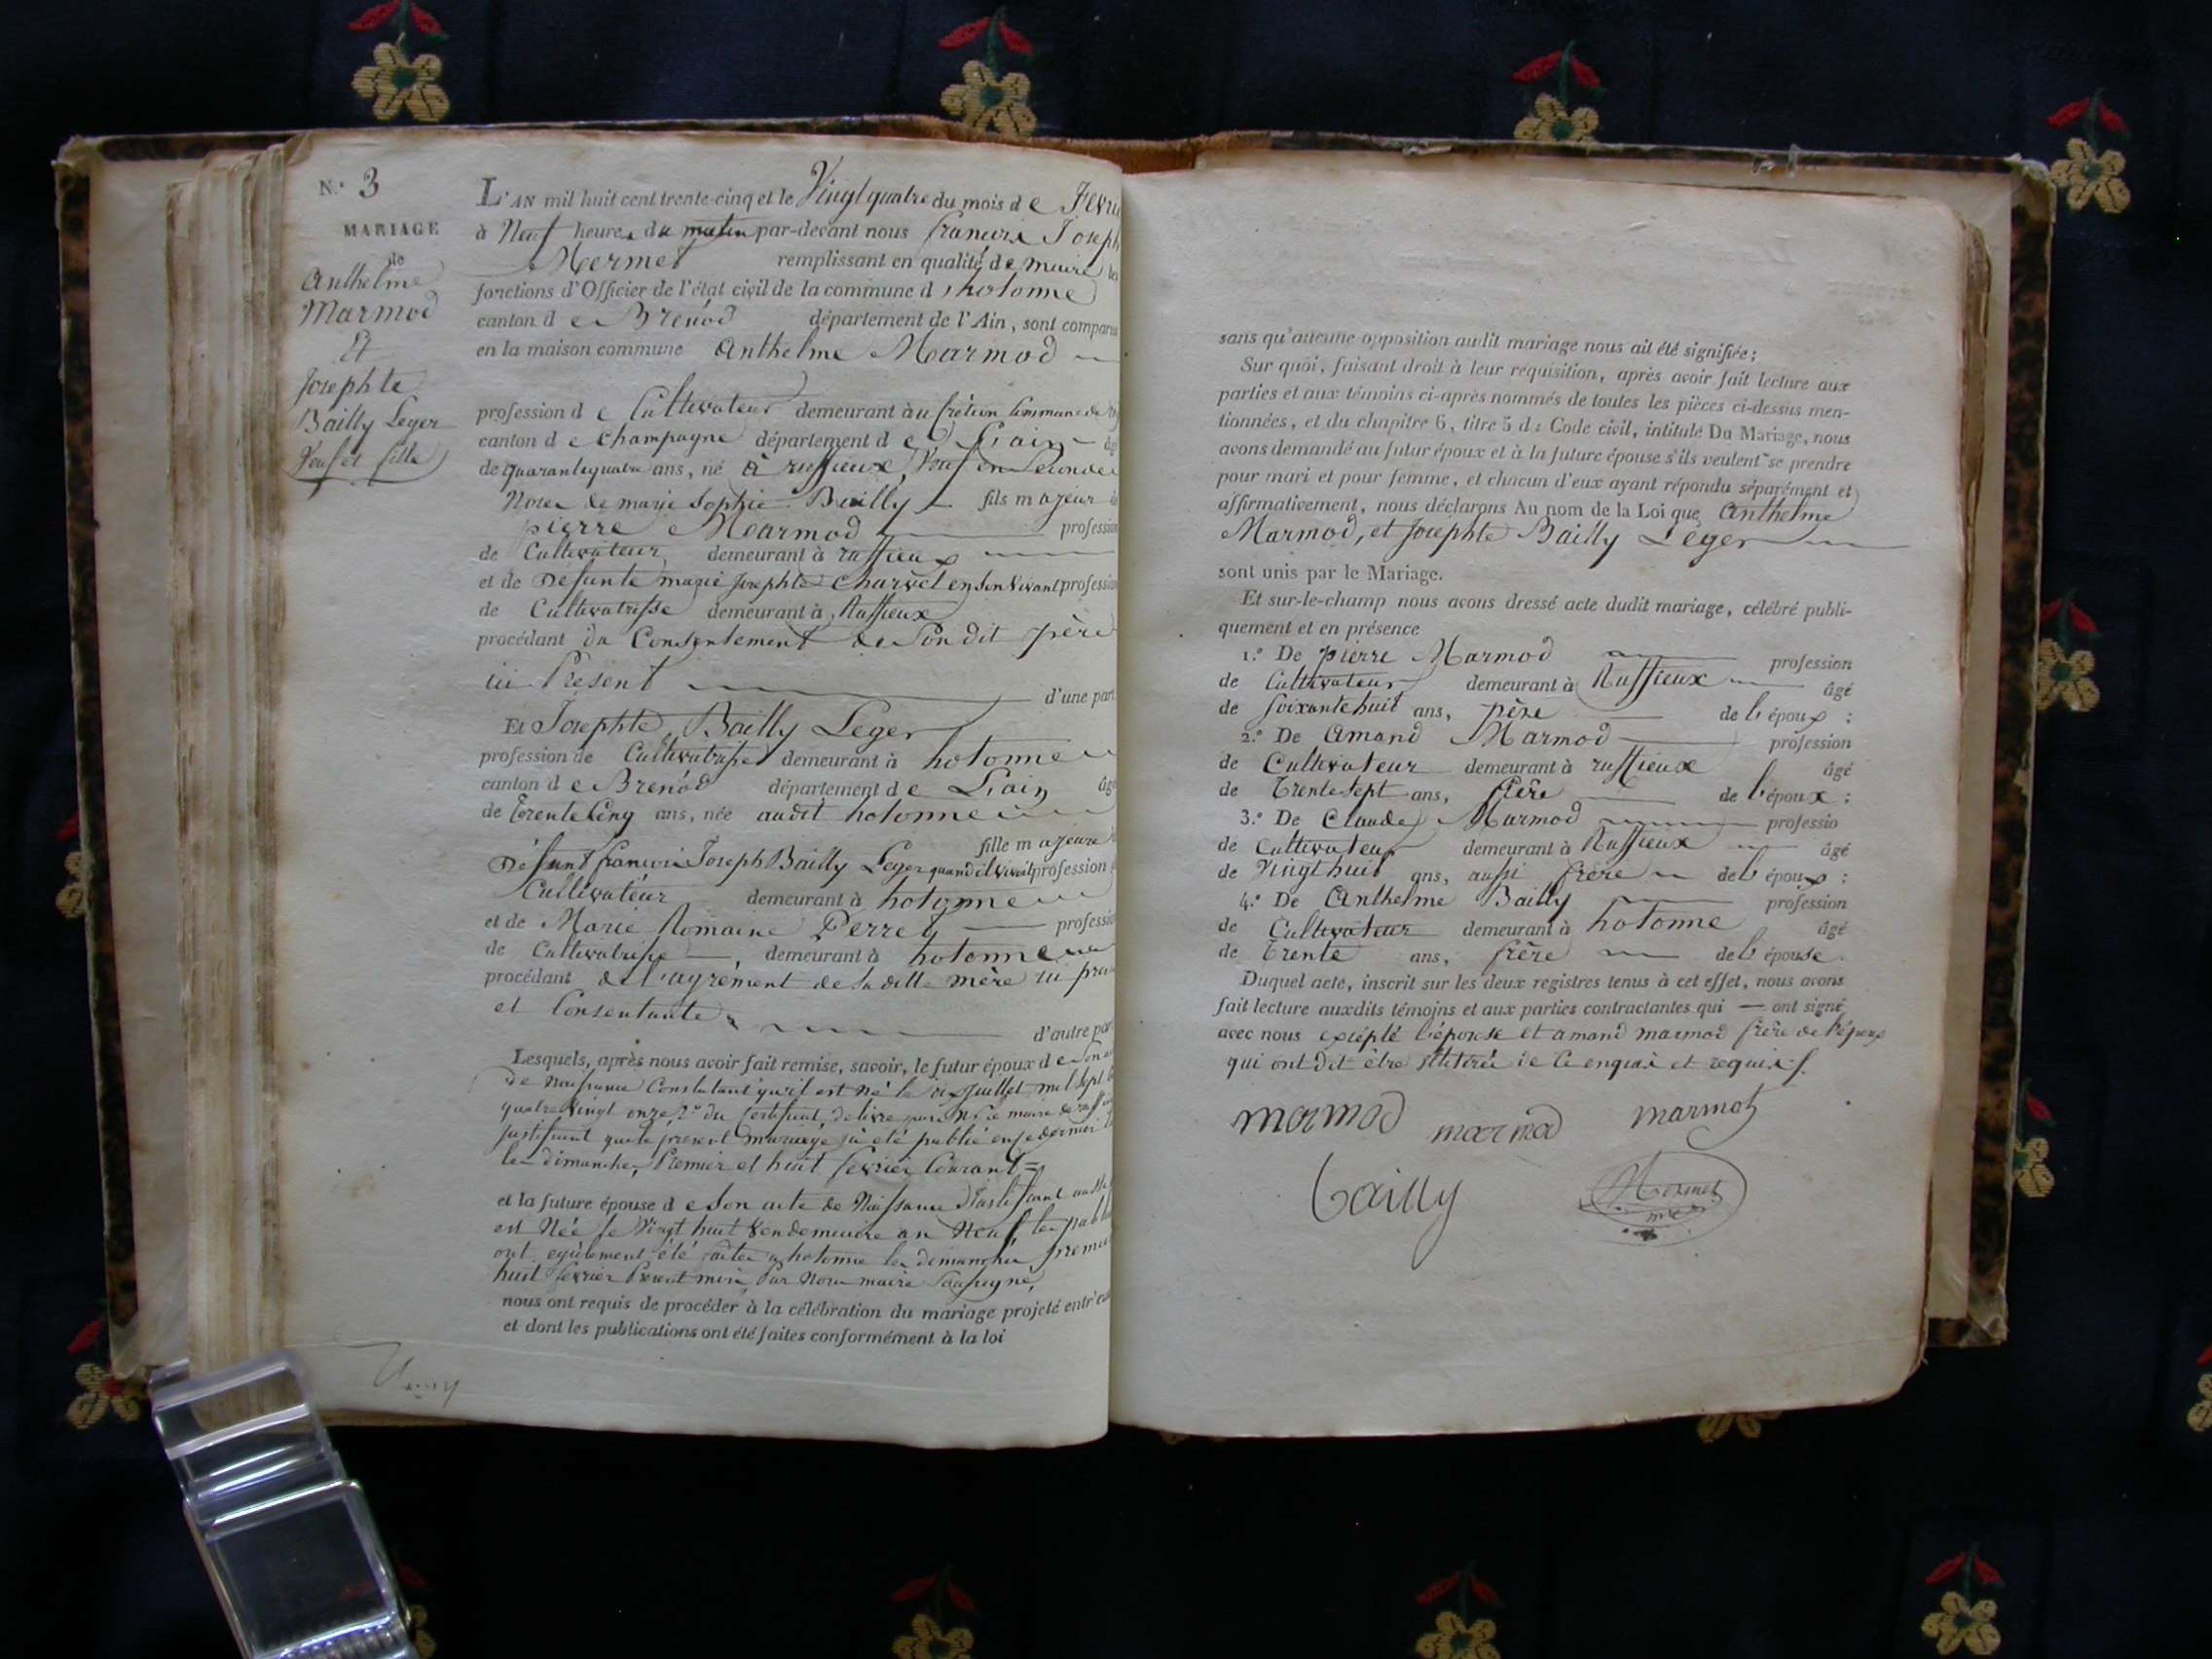 N.° 3
MARIAGE
de
Anthelme
Marmod
Et
Josephte
Bailly Leger
Veuf et fille
L'AN mil huit cent trente-cinq et le Vingt quatre du mois de
à Neuf heures du matin par-devant nous françois Joseph
Mermet remplissant en qualité de maire les
fonctions d'Officier de l'état civil de la commune d'hotonne
canton de Brenód département de l'Ain, sont comparus
en la maison commune Anthelme Marmod
profession de Cultivateur demeurant au Commune de
canton de Champagne département de L'ain
de quarante quatre ans, né à ruffieux, Veuf en Seconde
Noces de marie Sophie Bailly fils majeur
pierre Marmod profession
de Cultivateur demeurant à ruffieux
et de Défunte marie Josephte Charvet en Son Vivant profession
de Cultivatrisse demeurant à Ruffieux
procédant du Consentement de Son dit père
ici Présent d'une part
Et Josephte Bailly Leger
profession de Cultivatrisse demeurant à hotonne
canton de Brenód département de L'ain âgé
de Trente Cinq ans, née audit hotonne
fille majeure
Défunt françois Joseph Bailly Leger quand il vivoit profession
Cultivateur demeurant à hotonne
et de Marie Romaine Perret profession
de Cultivatrisse, demeurant à hotonne
procédant de l'agrément de Sa ditte mère ici
et Consentante d'autre part
Lesquels, après nous avoir fait remise, savoir, le futur époux de Son
de Naissance Constatant qu'il est Né le Juillet mil Sept
quatre Vingt onze 2.° du Certificat, délivré par Mr le maire de
Justifiant que le présent mariage a été publié en ce dernier
les dimanches Premier et huit février Courant =
et la future épouse de Son acte de Naissance Justifiant
est Née le Vingt huit Vendemiaire an Neuf, les
ont egalement été faites a hotonne les dimanches premier
huit fevrier Présent mois Par Nous maire Soussigné,
nous ont requis de procéder à la célébration du mariage projeté entr'eux
et dont les publications ont été faites conformément à la loi
sans qu'aucune opposition audit mariage nous ait été signifiée;
Sur quoi, faisant droit à leur requisition, après avoir fait lecture aux
parties et aux témoins ci-après nommés de toutes les pièces ci-dessus men-
tionnées, et du chapitre 6, titre 5 du Code civil, intitulé Du Mariage, nous
avons demandé au futur époux et à la future épouse s'ils veulent se prendre
pour mari et pour femme, et chacun d'eux ayant répondu séparément et
affirmativement, nous déclarons Au nom de la Loi que Anthelme
Marmod, et Josephte Bailly Léger
sont unis par le Mariage.
Et sur-le-champ nous avons dressé acte dudit mariage, célébré publi-
quement et en présence
1.° De pierre Marmod profession
de Cultivateur demeurant à Ruffieux âgé
de Soixante huit ans, père de l'époux :
2.° De Amand Marmod profession
de Cultivateur demeurant à ruffieux âgé
de Trente Sept ans, frère de l'époux :
3.° De Claude Marmod professio
de Cultivateur demeurant à Ruffieux âgé
de Vingt huit ans, aussi frère de l'époux :
4.° De Anthelme Bailly profession
de Cultivateur demeurant à hotonne âgé
de Trente ans, frère de l'épouse
Duquel acte, inscrit sur les deux registres tenus à cet effet, nous avons
fait lecture auxdits témoins et aux parties contractantes qui — ont signé
avec nous exépté l'épouse et amand marmod frère de l'époux
qui ont dit être illiterée de ce enquis et requis.
marmod marmod marmod
bailly Mermet